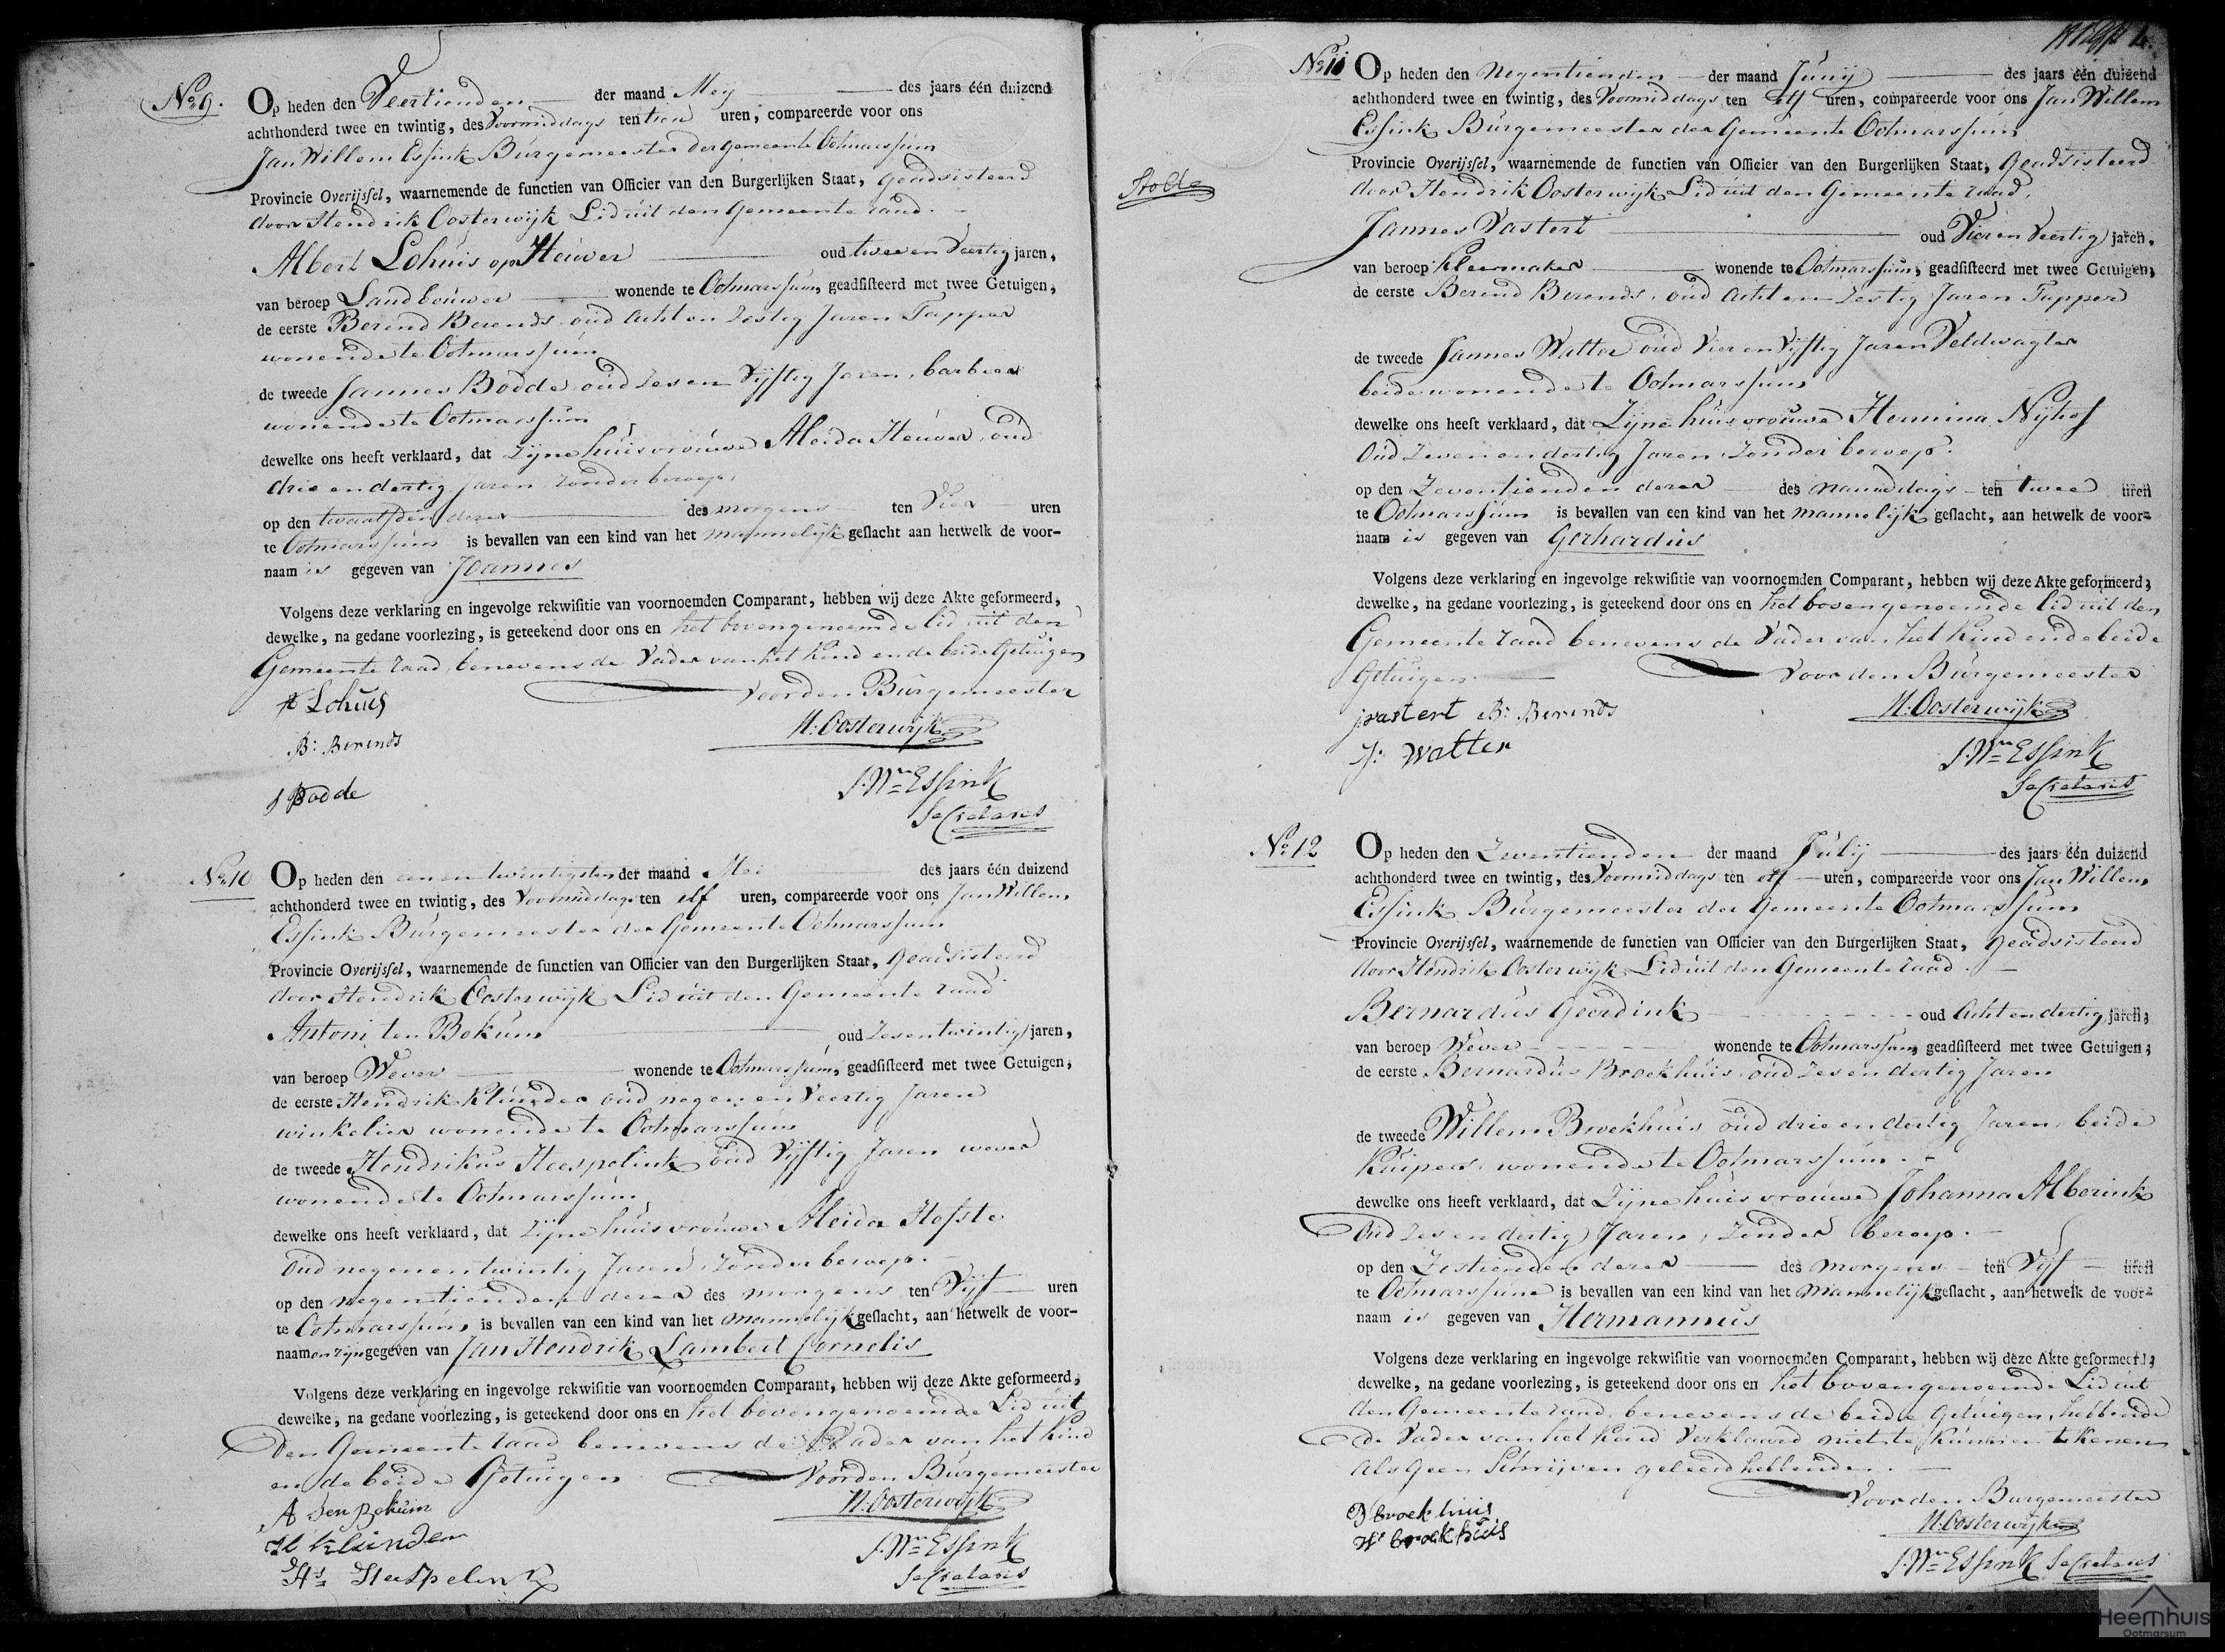 No 9.
Op heden den Veertienden der maand Meij des jaars één duizend
achthonderd twee en twintig, des Voormiddags ten tien uren, compareerde voor ons
Jan Willem Essink Burgemeester der Gemeente Ootmarssum
Provincie Overijssel, waarnemende de functien van Officier van den Burgerlijken Staat, geadsisteerd
door Hendrik Oosterwijk Lid uit den Gemeente raad.
Albert Lohuis op Heuver oud twee en Veertig jaren,
van beroep Landbouwer wonende te Ootmarssum, geadsisteerd met twee Getuigen,
de eerste Berend Berends, oud acht en Zestig Jaren Tapper
wonende te Ootmarssum
de tweede Jannes Bodde oud Zes en Vijftig Jaren, barbier
wonende te Ootmarssum
dewelke ons heeft verklaard, dat Zijne huisvrouwe Aleida Heuver, oud
drie en dertig Jaren Zonder beroep,
op den twaalfden dezer des morgens ten Vier uren
te Ootmarssum is bevallen van een kind van het mannelijk geslacht aan hetwelk de voor-
naam is gegeven van Joannes
Volgens deze verklaring en ingevolge rekwisitie van voornoemden Comparant, hebben wij deze Akte geformeerd,
dewelke, na gedane voorlezing, is geteekend door ons en het bovengenoemde lid uit den
Gemeente raad, benevens de Vader van het Kind en de beide Getuigen
Voor den Burgemeester
A Lohuis
H: Oosterwijk
B: Berends
J. Wm Essink
J Bodde
Secretaris
No 10
Op heden den een en twintigsten der maand Mei des jaars één duizend
achthonderd twee en twintig, des Voormiddags ten elf uren, compareerde voor ons Jan Willem
Essink Burgemeester der Gemeente Ootmarssum
Provincie Overijssel, waarnemende de functien van Officier van den Burgerlijken Staat, geadsisteerd
door Hendrik Oosterwijk Lid uit den Gemeente raad
Antoni ten Bokum oud Zes en twintig jaren,
van beroep Wever wonende te Ootmarssum, geadsisteerd met twee Getuigen,
de eerste Hendrik Klunder oud negen en Veertig Jaren
winkelier wonende te Ootmarssum
de tweede Hendrikus Heespelink oud Vijftig Jaren wever
wonende te Ootmarssum
dewelke ons heeft verklaard, dat Zijne huisvrouwe Aleida Hofste
Oud negen en twintig Jaren, Zonder beroep.
op den negentienden dezer des morgens ten Vijf uren
te Ootmarssum is bevallen van een kind van het mannelijk geslacht, aan hetwelk de voor-
naamen zijn gegeven van Jan Hendrik Lambert Cornelis
Volgens deze verklaring en ingevolge rekwisitie van voornoemden Comparant, hebben wij deze Akte geformeerd,
dewelke, na gedane voorlezing, is geteekend door ons en het bovengenoemde Lid uit
den Gemeente raad benevens de Vader van het Kind
en de beide Getuigen Voor den Burgemeester
A ten Bokum
H: Oosterwijk
H Klunder
J. Wm Essink
Hs Heespelink
Secretaris
No 11
Op heden den Negentienden der maand Junij des jaars één duizend
achthonderd twee en twintig, des Voormiddags ten Elf uren, compareerde voor ons Jan Willem
Essink Burgemeester der Gemeente Ootmarssum
Provincie Overijssel, waarnemende de functien van Officier van den Burgerlijken Staat, geadsisteerd
door Hendrik Oosterwijk Lid uit den Gemeente raad.
Jannes Vastert oud Vier en Veertig jaren,
van beroep Kleermaker wonende te Ootmarssum, geadsisteerd met twee Getuigen,
de eerste Berend Berends, oud acht en Zestig Jaren Tapper
de tweede Jannes Watter oud Vier en Vijftig Jaren Veldwagter
beide wonende te Ootmarssum
dewelke ons heeft verklaard, dat Zijne huisvrouwe Hermina Nijhof
Oud Zeven en dertig Jaren, Zonder beroep.
op den Zeventienden dezer des namiddags ten twee uren
te Ootmarssum is bevallen van een kind van het mannelijk geslacht, aan hetwelk de voor-
naam is gegeven van Gerhardus
Volgens deze verklaring en ingevolge rekwisitie van voornoemden Comparant, hebben wij deze Akte geformeerd,
dewelke, na gedane voorlezing, is geteekend door ons en het bovengenoemde lid uit den
Gemeente raad benevens de Vader van het Kind en de beide
Getuigen Voor den Burgemeester
J vastert B: Berends
H: Oosterwijk
J: Watter
J. Wm Essink
Secretaris
No 12
Op heden den Zeventienden der maand Julij des jaars één duizend
achthonderd twee en twintig, des Voormiddags ten elf uren, compareerde voor ons Jan Willem
Essink Burgemeester der Gemeente Ootmarssum
Provincie Overijssel, waarnemende de functien van Officier van den Burgerlijken Staat, geadsisteerd
door Hendrik Oosterwijk Lid uit den Gemeente raad.
Bernardus Geerdink oud Acht en dertig jaren,
van beroep Wever wonende te Ootmarssum, geadsisteerd met twee Getuigen,
de eerste Bernardus Broekhuis oud Zes en dertig Jaren
de tweede Willem Broekhuis oud drie en dertig Jaren, beide
Kuipers, wonende te Ootmarssum.
dewelke ons heeft verklaard, dat Zijne huisvrouwe Johanna Alberink
Oud Zes en dertig Jaren, Zonder beroep.
op den Zestienden dezer des morgens ten Vijf uren
te Ootmarssum is bevallen van een kind van het mannelijk geslacht, aan hetwelk de voor-
naam is gegeven van Hermannus
Volgens deze verklaring en ingevolge rekwisitie van voornoemden Comparant, hebben wij deze Akte geformeerd,
dewelke, na gedane voorlezing, is geteekend door ons en het bovengenoemde Lid uit
den Gemeente raad, benevens de beide Getuigen, hebbende
de Vader van het Kind Verklaard niet te kunnen tekenen
als geen Schrijven geleerd hebbende.
Voor den Burgemeester
B broekhuis
H: Oosterwijk
W broekhuis
J. Wm Essink Secretaris
Heemhuis
Ootmarsum